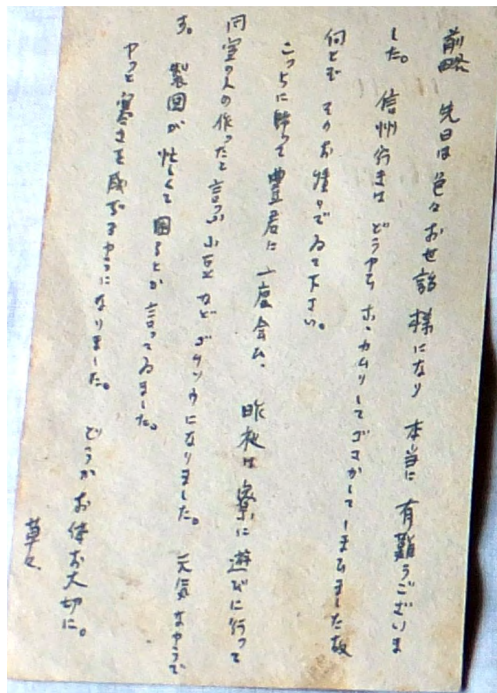 前略 先日は色々お世話様になり 本当に 有難うございま
した。 信州行きは どうやら ホホカムリしてゴマかしてしまひました故
何とぞ そのお積りで ゐて下さい。
こっちに帰って 豊君に 一度会ひ、 昨夜は寮に遊びに行って
同室の人の作ったと言ふ小豆など ゴチソウになりました。 元気なやうで
す。 製図が忙しくて困るとか言ってゐました。
ヤット寒さを感ずるやうになりました。 どうかお体お大切に。
草々